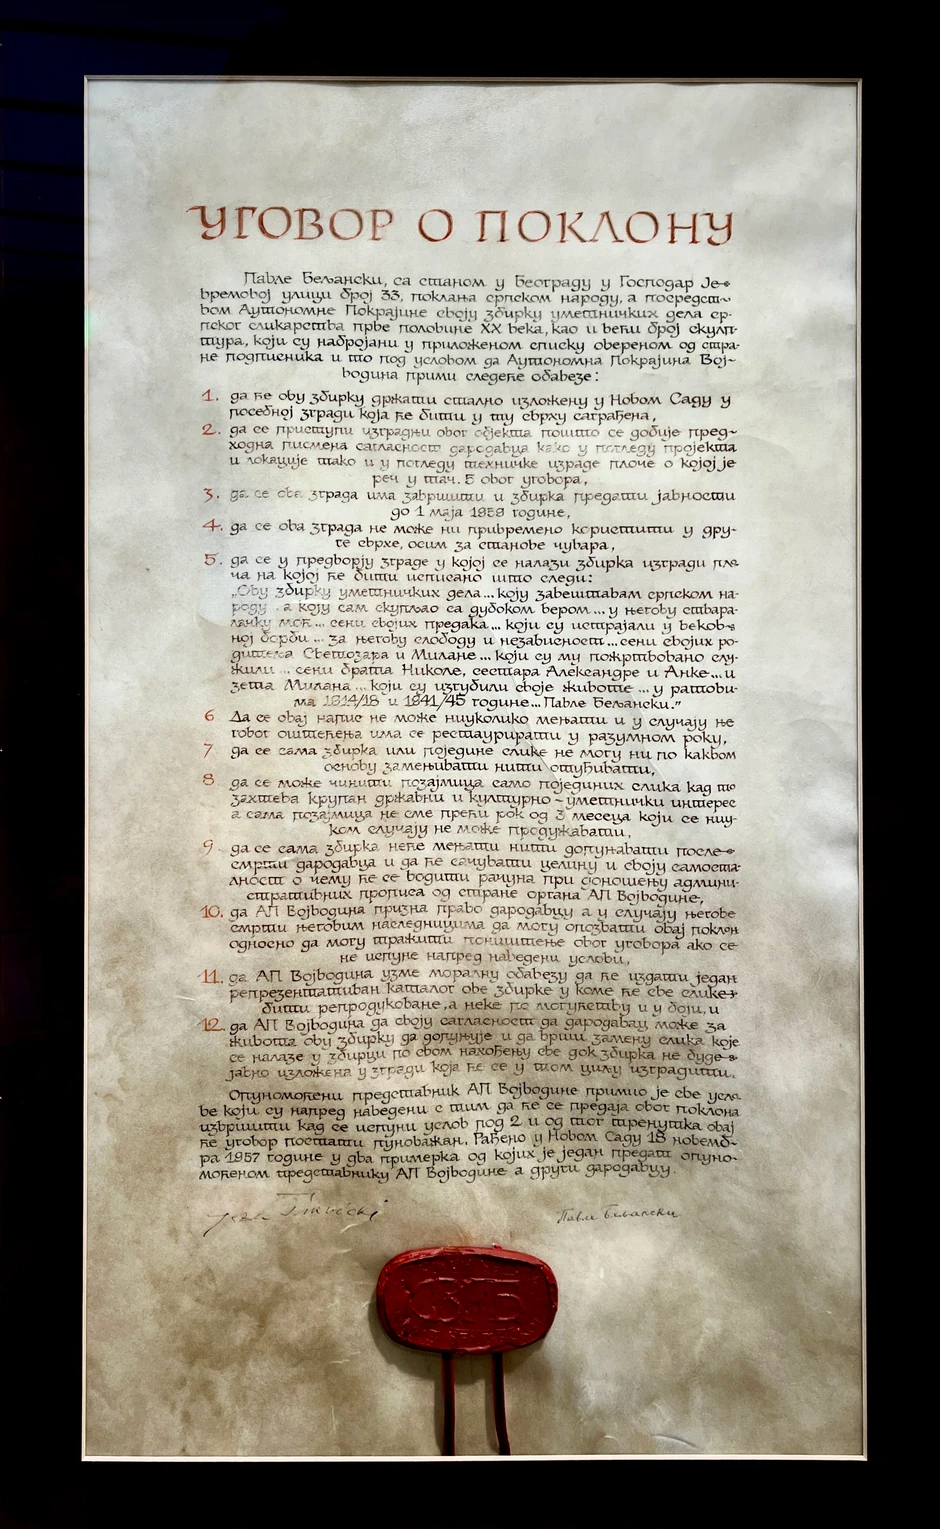 УГОВОР О ПОКЛОНУ
Павле Бељански, са станом у Београду у Господар Је-
времовој улици број 33, поклања српском народу, а посредст-
вом Аутономне Покрајине своју збирку уметничких дела ср-
пског сликарства прве половине XX века, као и већи број скулп-
тура, који су набројани у приложеном списку овереном од стра-
не подписника и то под условом да Аутономна Покрајина Вој-
водина прими следеће обавезе:
1. да ће ову збирку држати стално изложену у Новом Саду у
посебној згради која ће бити у ту сврху саграђена,
2. да се приступи изградњи овог објекта пошто се добије пред-
ходна писмена сагласност дародавца како у погледу пројекта
и локације тако и у погледу техничке израде плоче о којој је
реч у тач. 5 овог уговора,
3. да се ова зграда има завршити и збирка предати јавности
до 1 маја 1959 године,
4. да се ова зграда не може ни привремено користити у дру-
ге сврхе, осим за станове чувара,
5. да се у предворју зграде у којој се налази збирка изгради пло-
ча на којој ће бити исписано што следи:
„Ову збирку уметничких дела... коју завештавам српском на-
роду ..а коју сам скупљао са дубоком вером... у његову ствара-
лачку моћ... сени својих предака... који су истрајали у веков-
ној борби ... за његову слободу и независност... сени својих ро-
дитеља Светозара и Милане... који су му пожртвовано слу-
жили ... сени брата Николе, сестара Александре и Анке... и
зета Милана ... који су изгубили своје животе ... у ратови-
ма 1914/18 и 1941/45 године... Павле Бељански.”
6 Да се овај напис не може ниуколико мењати и у случају ње
говог оштећења има се рестаурирати у разумном року,
7 да се сама збирка или поједине слике не могу ни по каквом
основу замењивати нити отуђивати,
8 да се може чинити позајмица само појединих слика кад то
захтева крупан државни и културно-уметнички интерес
а сама позајмица не сме прећи рок од 3 месеца који се ниу-
ком случају не може продужавати,
9. да се сама збирка неће мењати нити допуњавати после
смрти дародавца и да ће сачувати целину и своју самоста-
лност о чему ће се водити рачуна при доношењу админи-
стративних прописа од стране органа АП Војводине,
10. да АП Војводина призна право дародавцу а у случају његове
смрти његовим наследницима да могу опозвати овај поклон
односно да могу тражити поништење овог уговора ако се
не испуне напред наведени услови,
11. да АП Војводина узме моралну обавезу да ће издати један
репрезентативан каталог ове збирке у коме ће све слике
бити репродуковане, а неке по могућству и у боји, и
12. да АП Војводина да своју сагласност да дародавац може за
живота ову збирку да допуњује и да врши замену слика које
се налазе у збирци по свом нахођењу све док збирка не буде
јавно изложена у згради која ће се у том циљу изградити.
Опуномоћени представник АП Војводине примио је све усло
ве који су напред наведени с тим да ће се предаја овог поклона
извршити кад се испуни услов под 2 и од тог тренутка овај
ће уговор постати пуноважан. Рађено у Новом Саду 18 новемб-
ра 1957 године у два примерка од којих је један предат опуно-
моћеном представнику АП Војводине а други дародавцу.
Павле Бељански
СЗПБ